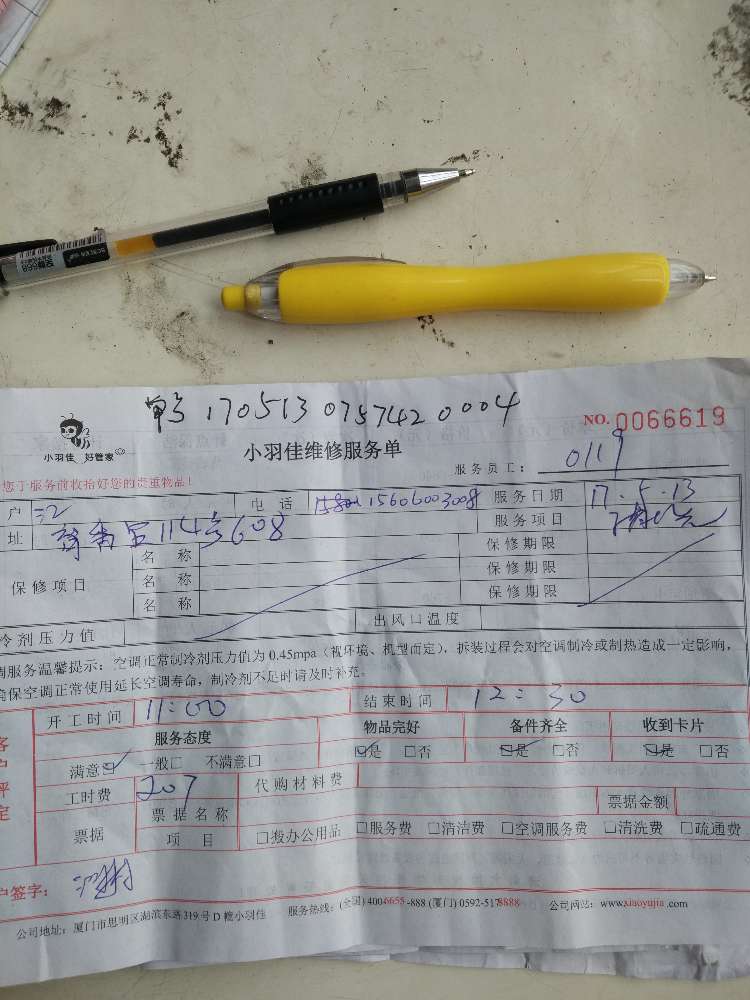 单号 1705130757420004
小羽佳 好管家
小羽佳维修服务单
NO. 0066619
您于服务前收拾好您的贵重物品!
服务员工: 0119
户 电 话 15606003008 服务日期 17.5.13
址 114号608 服务项目
保修项目 名 称 保修期限
名 称 保修期限
名 称 保修期限
冷剂压力值 出风口温度
调服务温馨提示:空调正常制冷剂压力值为 0.45mpa(视环境、机型而定),拆装过程会对空调制冷或制热造成一定影响,
确保空调正常使用延长空调寿命,制冷剂不足时请及时补充。
开工时间 11:00 结束时间 12:30
服务态度 物品完好 备件齐全 收到卡片
满意☑ 一般□ 不满意□ ☑是 □否 ☑是 □否 ☑是 □否
工时费 207 代购材料费
票据 票据名称 票据金额
项 目 □报办公用品 □服务费 □清洁费 □空调服务费 □清洗费 □疏通费
客户评定
户签字:
公司地址:厦门市思明区湖滨东路319号D幢小羽佳 服务热线:(全国)4006655-888 (厦门) 0592-5178888 公司网站:www.xiaoyujia.com